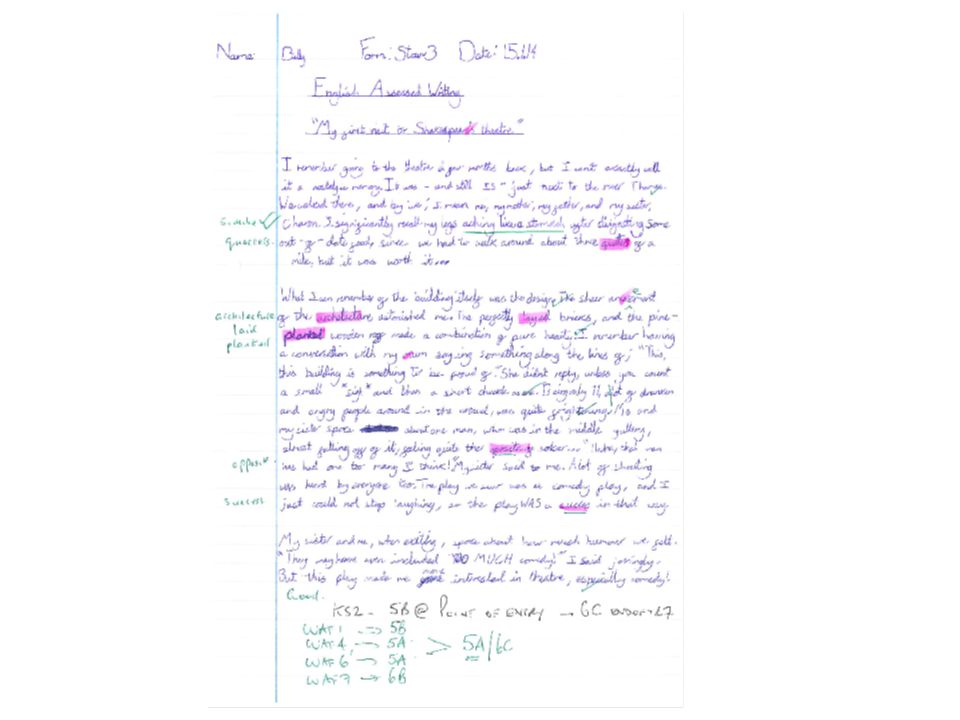 Name: Billy Form: Date:
English Assessed Writing
"My first visit to Shakespeare's theatre"
I remember going to the theatre a few months back, but I won't exactly call
it a nostalgic memory. It was - and still IS - just next to the river Thames.
We walked there, and by 'we', I mean me, my mother, my father, and my sister,
Simile Charon. I significantly recall my legs aching like a stomach after digesting some
quarters. out-of-date food, since we had to walk around about three of a
mile, but it was worth it...
What I can remember of the building itself was the design. The sheer
architecture of the architecture astonished me. The perfectly layed bricks, and the pine-
laid planked wooden made a combination of pure beauty. I remember having
planked a conversation with my mum saying something along the lines of; "This,
this building is something to be proud of." She didn't reply, unless you count
a small *sigh* and then a short chuckle. lot of drunken
and angry people around in the crowd, was quite frightening. Me and
my sister spoke about one man, who was in the middle gallery,
almost falling off of it, feeling quite the of sober... that man
opposite. has had one too many I think!" My sister said to me. A lot of shouting
was heard by everyone too. The play we saw was a comedy play, and I
success just could not stop laughing, so the play WAS a success in that way.
My sister and me, when exiting, spoke about how much humour we felt.
"They may have even included TOO MUCH comedy!" I said jokingly.
But this play made me more interested in theatre, especially comedy!
Good.
KS2 - 5B @ POINT OF ENTRY → 6C END OF Y7
WAF 1 → 5B
WAF 4 → 5A > 5A/6C
WAF 6 → 5A
WAF 7 → 6B